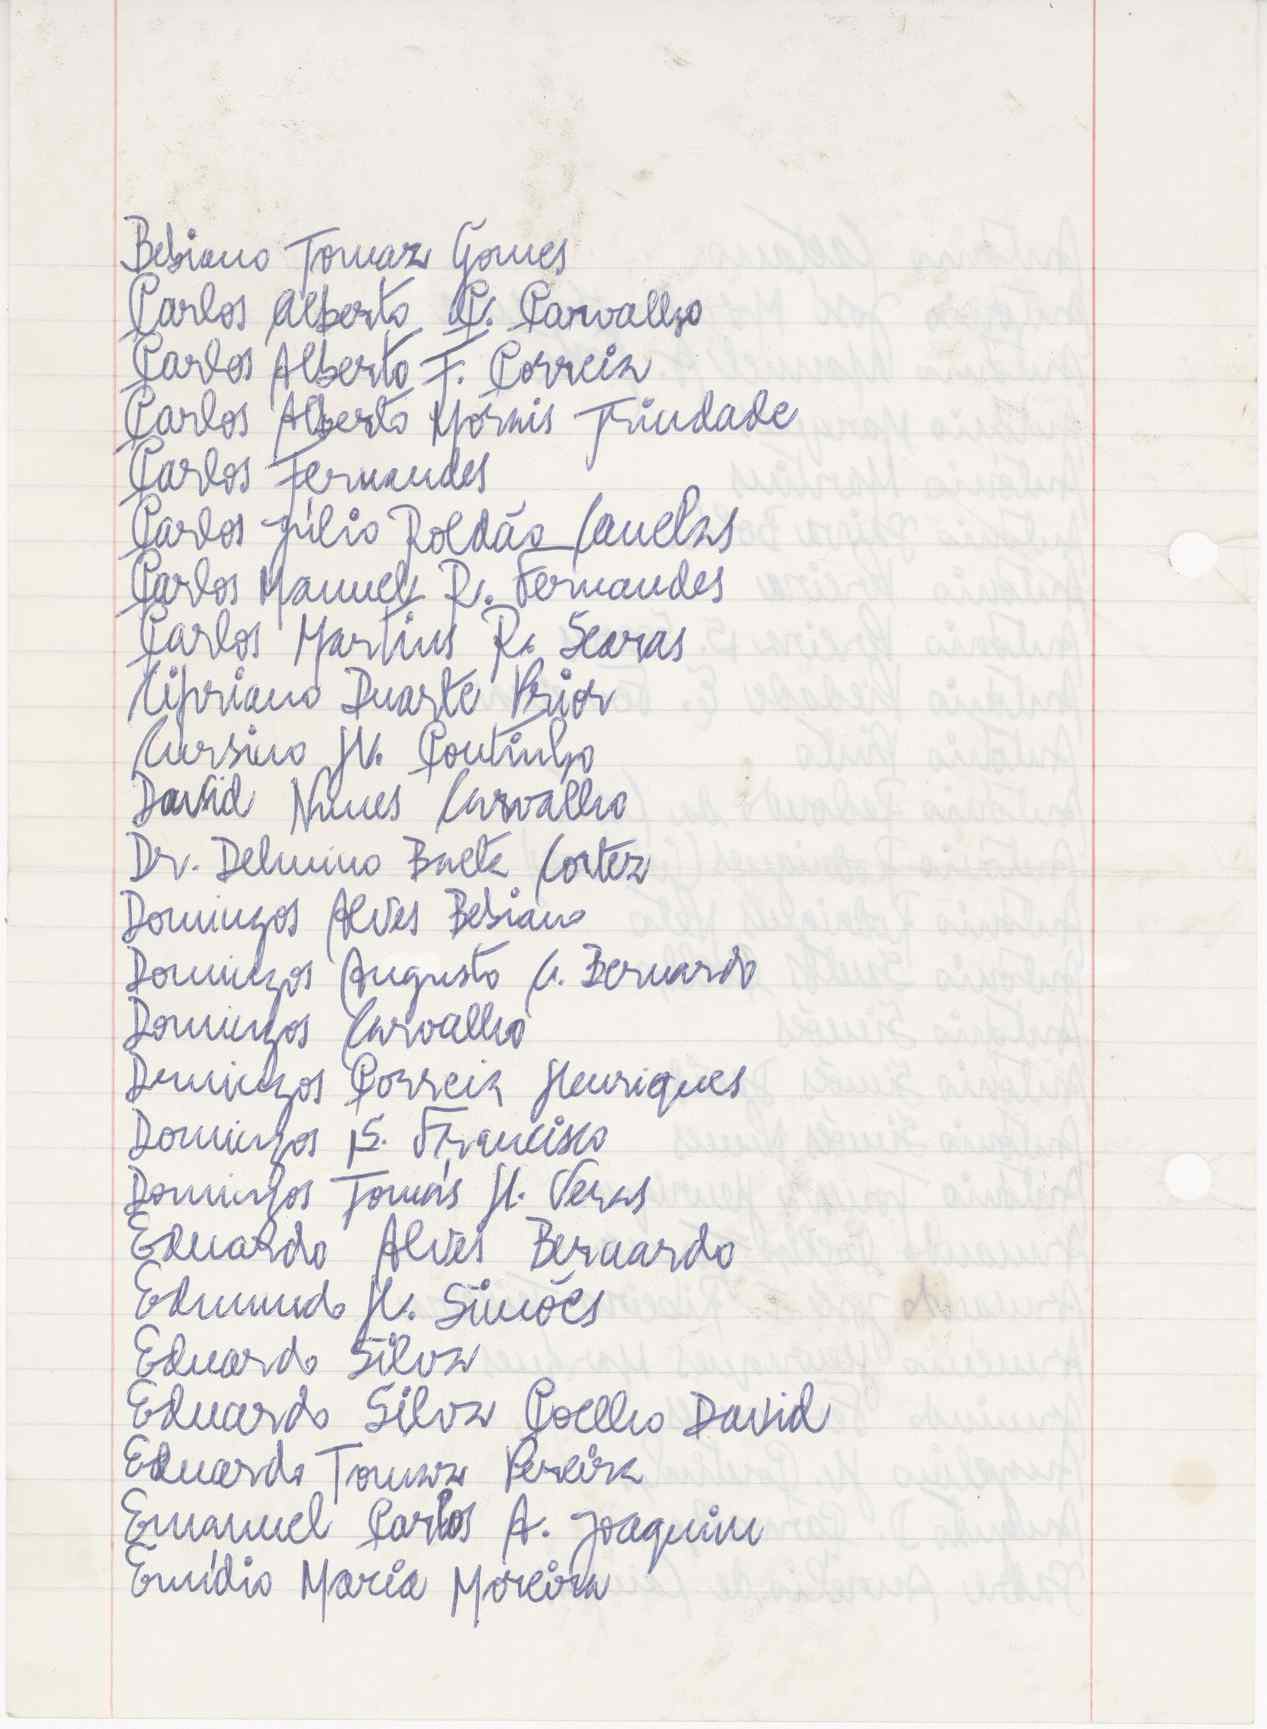 Bebiano Tomaz Gomes
Carlos Alberto C. Carvalho
Carlos Alberto F. Correia
Carlos Alberto Morais Trindade
Carlos Fernandes
Carlos Júlio Roldão Canelas
Carlos Manuel R. Fernandes
Carlos Martins R. Searas
Cipriano Duarte Prior
Cursino H. Coutinho
David Nunes Carvalho
Dr. Delmino Baeta Cortez
Domingos Alves Bebiano
Domingos Augusto C. Bernardo
Domingos Carvalho
Dmingos Correia Henriques
Domingos S. Francisco
Domingos Tomás H. Veras
Eduardo Alves Bernardo
Edmundo H. Simões
Eduardo Silva
Eduardo Silva Coelho David
Eduardo Tomaz Pereira
Emanuel Carlos A. Joaquim
Emídio Maria Moreira